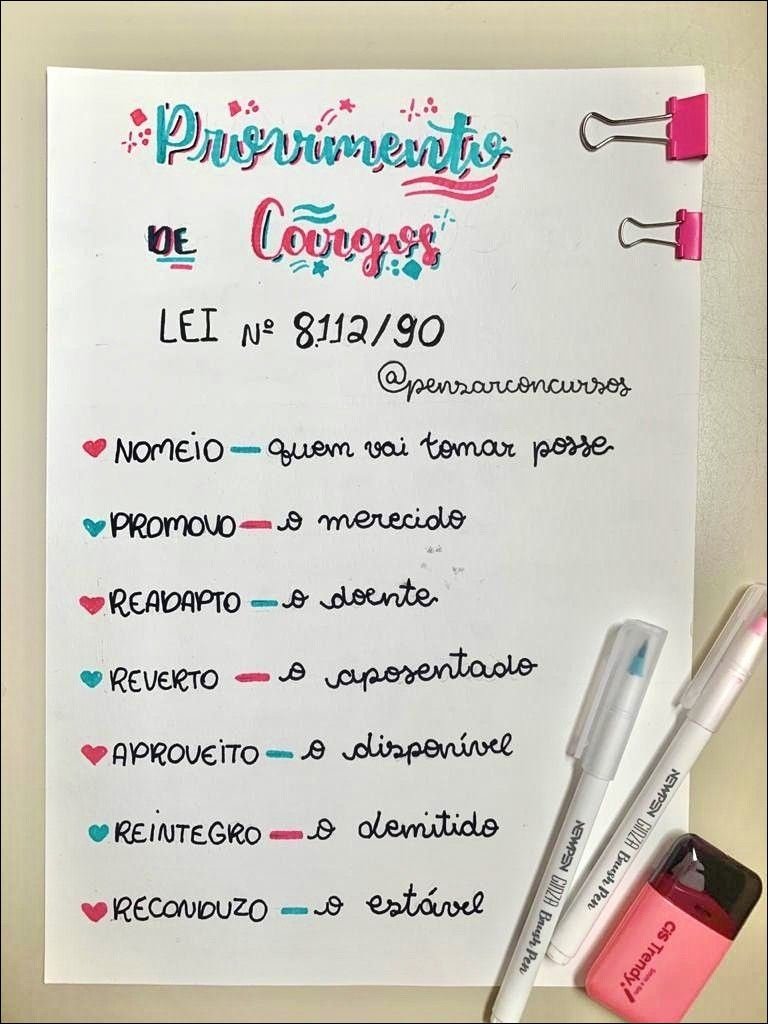 Provimento
DE Cargos
LEI Nº 8.112/90
@pensarconcursos
NOMEIO - quem vai tomar posse
PROMOVO - o merecido
READAPTO - o doente
REVERTO - o aposentado
APROVEITO - o disponível
REINTEGRO - o demitido
RECONDUZO - o estável
NEWPEN GINZA Brush Pen
NEWPEN GINZA Brush Pen
CiS Trendy!